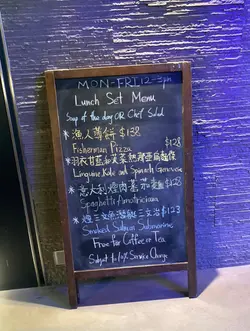 MON-FRI 12-3pm
Lunch Set Menu
Soup of the day OR Chef Salad
*漁人薄餅 $138
Fisherman Pizza
*羽衣甘藍和菠菜 $128
Linguine Kale and Spinach
*意大利煙肉 $128
Spaghetti Amatriciana
*煙三文魚潛艇三文治 $123
Smoked Salmon Submarine
Free for Coffee or Tea
Subject to 10% Service Charge